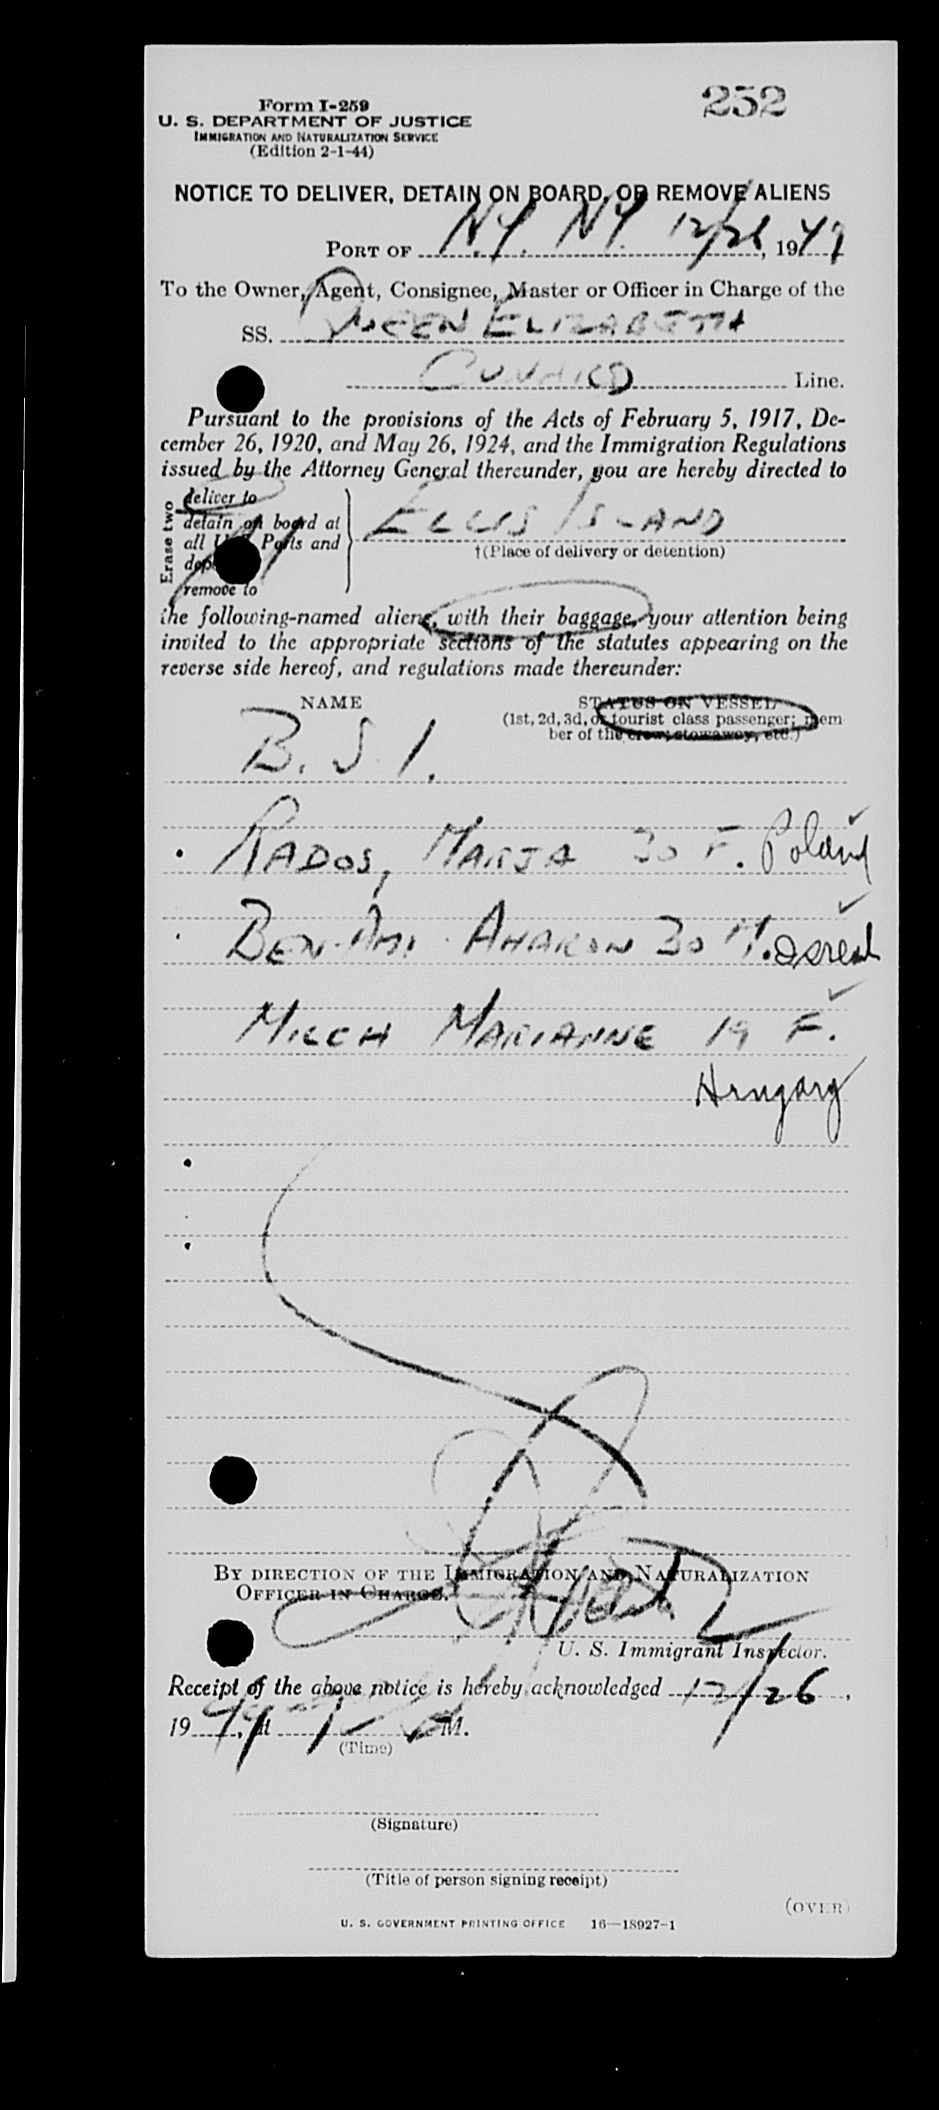 252
Form I-259
U. S. DEPARTMENT OF JUSTICE
IMMIGRATION AND NATURALIZATION SERVICE
(Edition 2-1-44)
NOTICE TO DELIVER, DETAIN ON BOARD, OR REMOVE ALIENS
PORT OF N.Y. N.Y. 12/26, 1949
To the Owner, Agent, Consignee, Master or Officer in Charge of the
SS. QUEEN ELIZABETH
CUNARD Line.
Pursuant to the provisions of the Acts of February 5, 1917, De-
cember 26, 1920, and May 26, 1924, and the Immigration Regulations
issued by the Attorney General thereunder, you are hereby directed to
Erase two
deliver to
detain on board at
all Ports and
remove to
ELLIS ISLAND
†(Place of delivery or detention)
the following-named aliens, with their baggage, your attention being
invited to the appropriate sections of the statutes appearing on the
reverse side hereof, and regulations made thereunder:
NAME STATUS ON VESSEL
(1st, 2d, 3d, or tourist class passenger; mem
ber of the crew; stowaway, etc.)
B. S. I.
RADOS, MARJA 30 F. Poland
BEN-AMI AHARON 30 M. Israel
MILCH MARIANNE 19 F.
Hungary
BY DIRECTION OF THE IMMIGRATION AND NATURALIZATION
OFFICER IN CHARGE.
U. S. Immigrant Inspector.
Receipt of the above notice is hereby acknowledged 12/26,
1949, at M.
(Time)
(Signature)
(Title of person signing receipt)
(OVER)
U. S. GOVERNMENT PRINTING OFFICE 16—18927-1